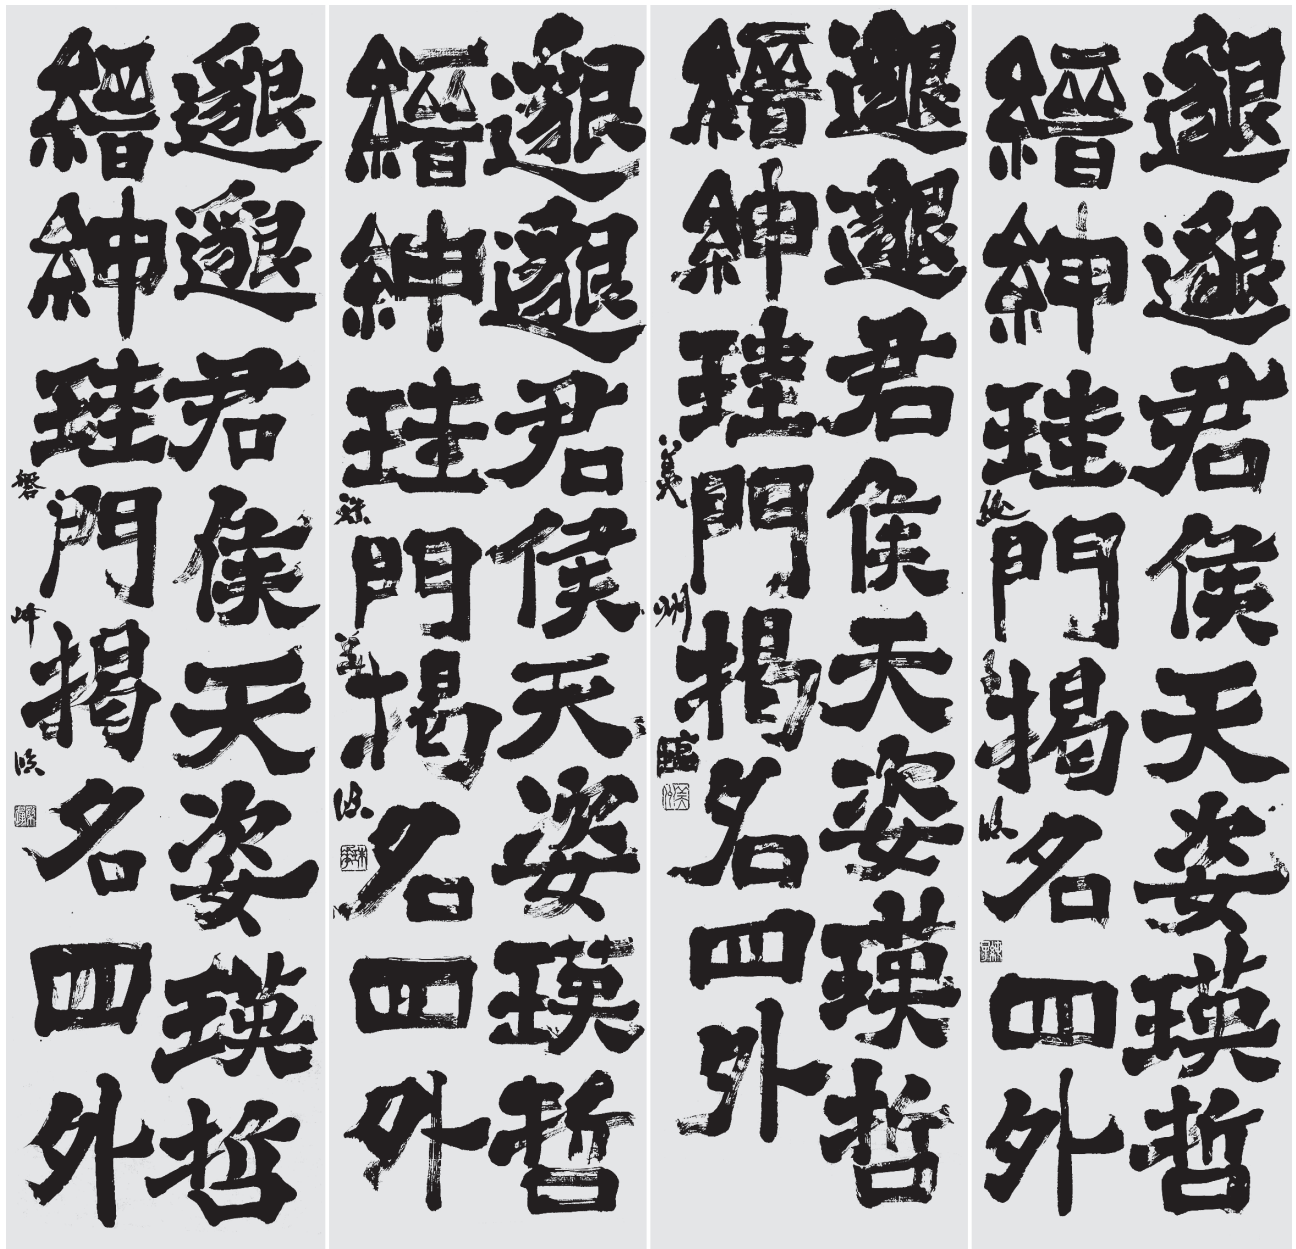 邈邈君侯天姿瑛哲
縉紳珪門揭名四外
邈邈君侯天姿瑛哲
縉紳珪門揭名四外
美州臨
邈邈君侯天姿瑛哲
縉紳珪門揭名四外
邈邈君侯天姿瑛哲
縉紳珪門揭名四外
磐峰臨